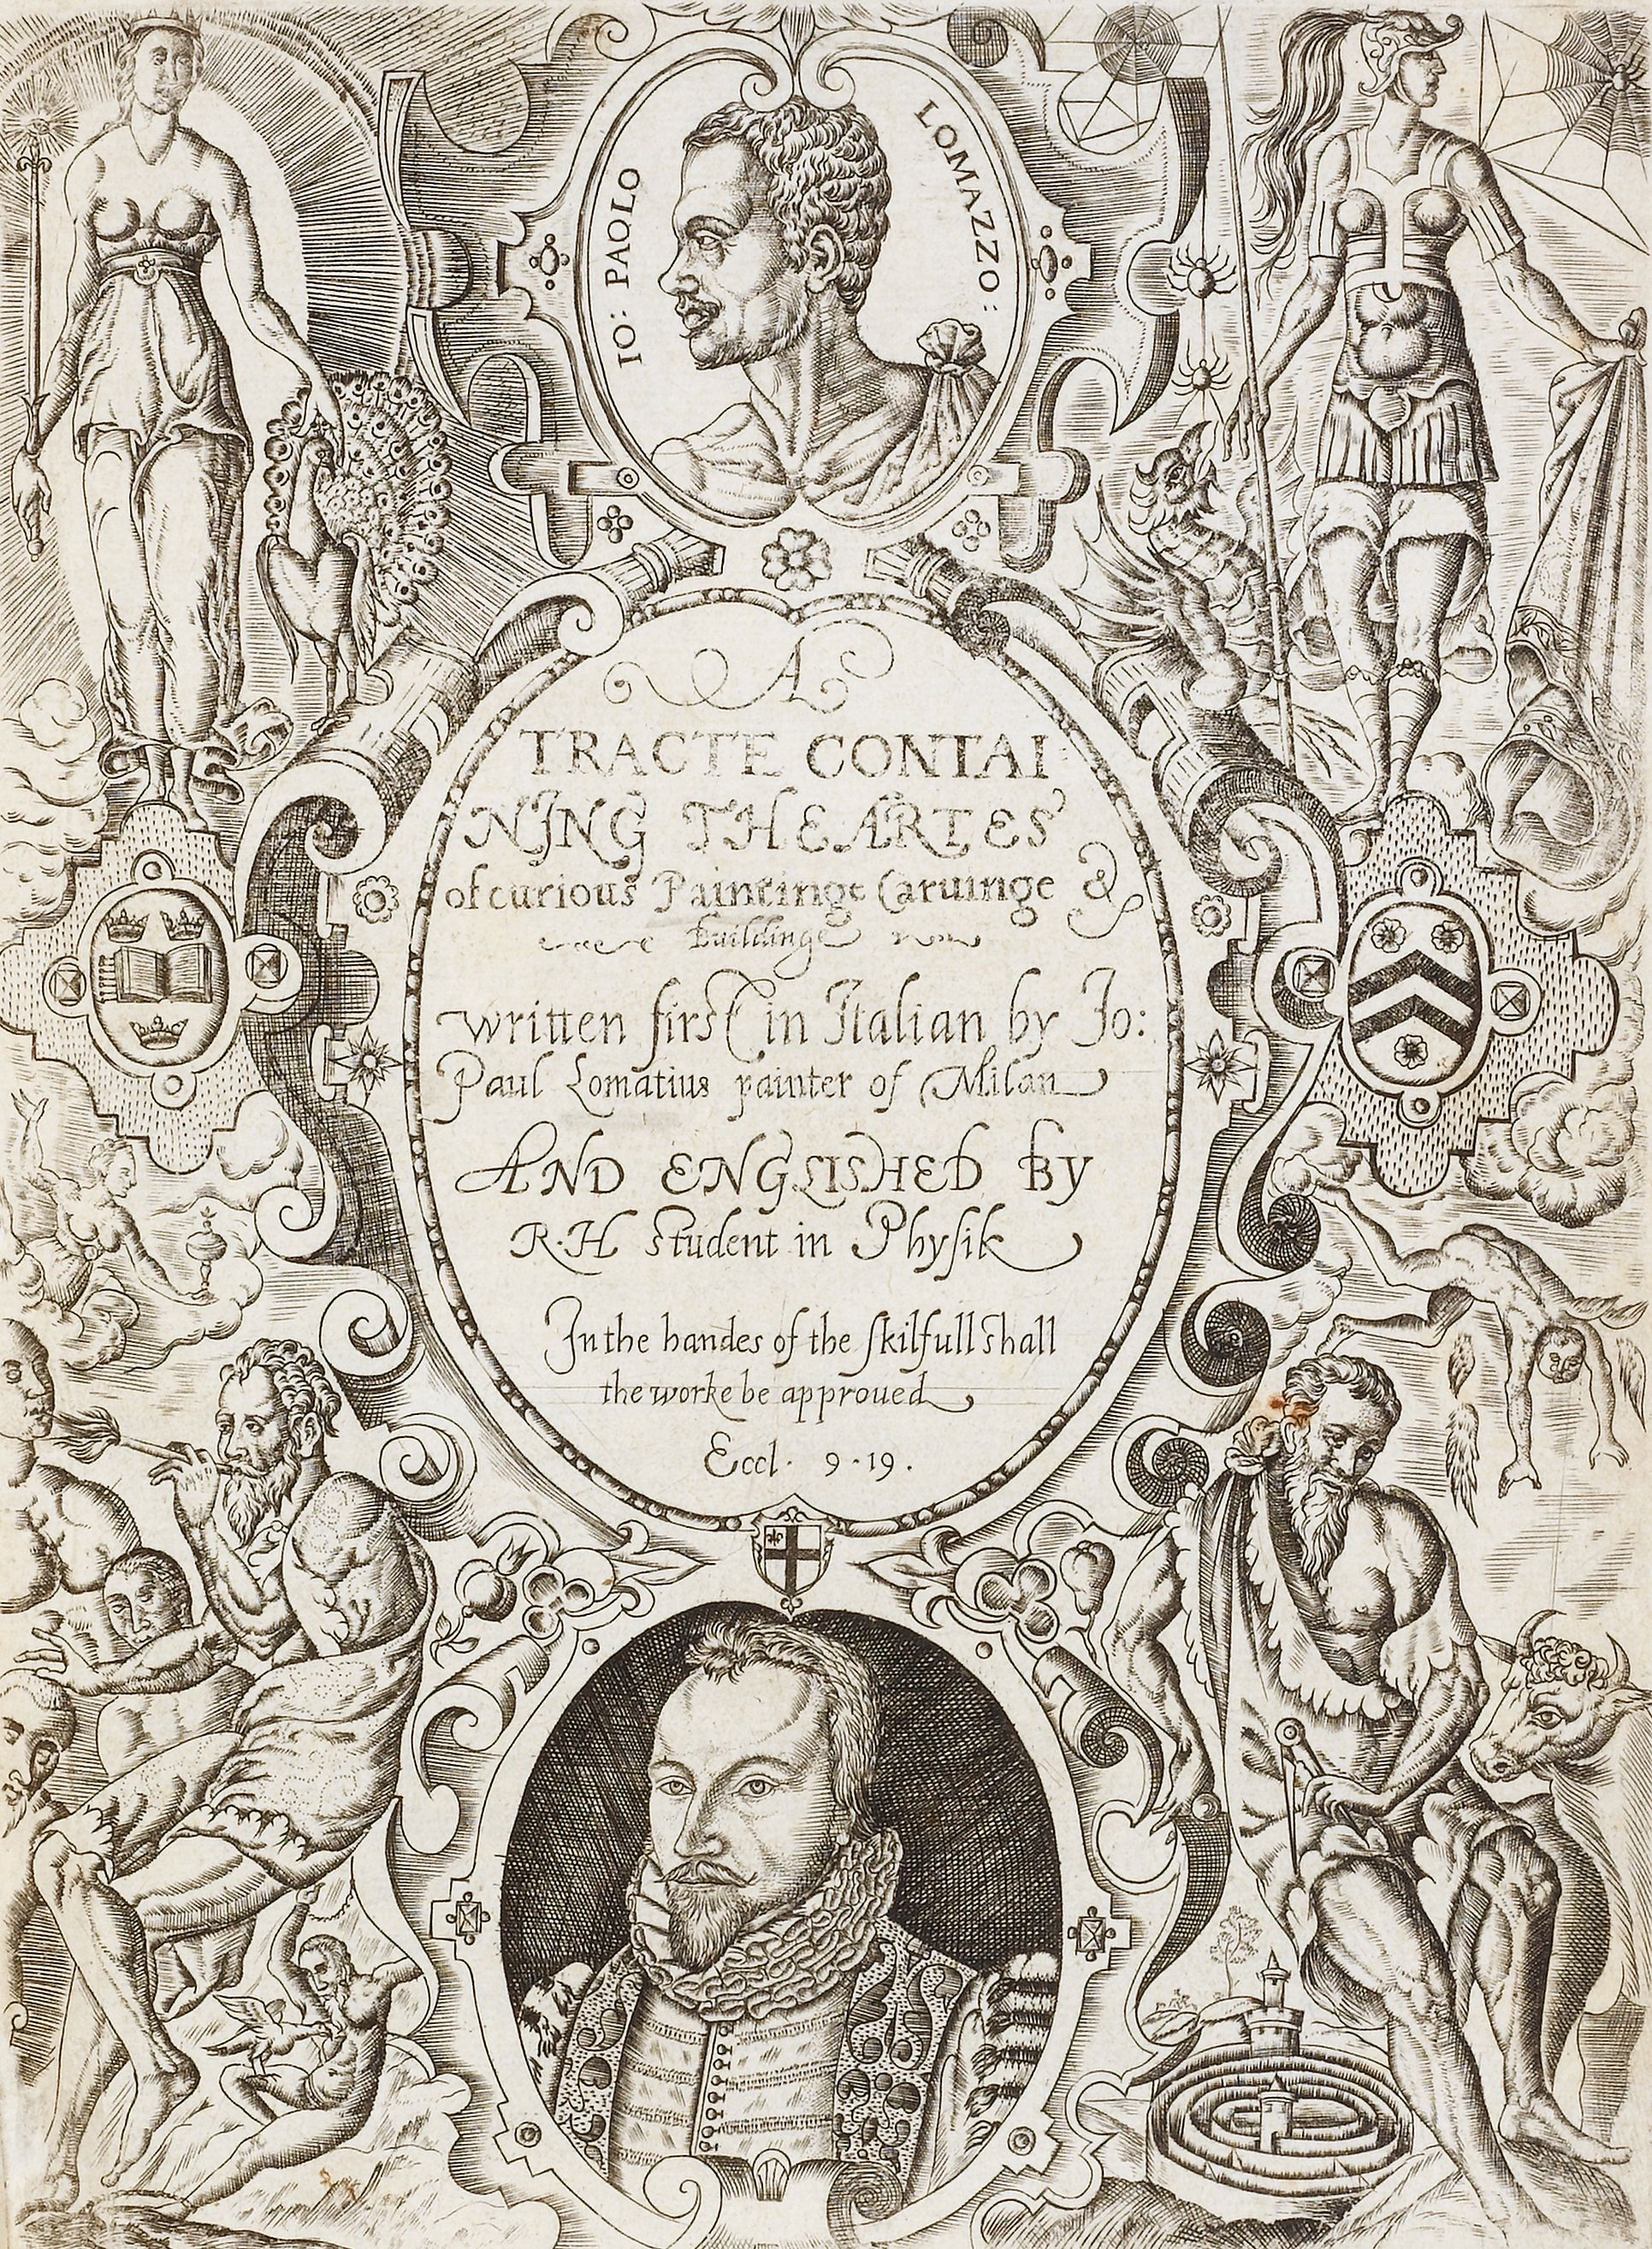 IO: PAOLO
LOMAZZO:
A
TRACTE CONTAI
NING THE ARTES
of curious Paintinge Caruinge &
Buildinge
written first in Italian by Jo:
Paul Lomatius painter of Milan
AND ENGLISHED BY
R·H student in Physik
In the handes of the skilfull shall
the worke be approued
Eccl· 9·19.